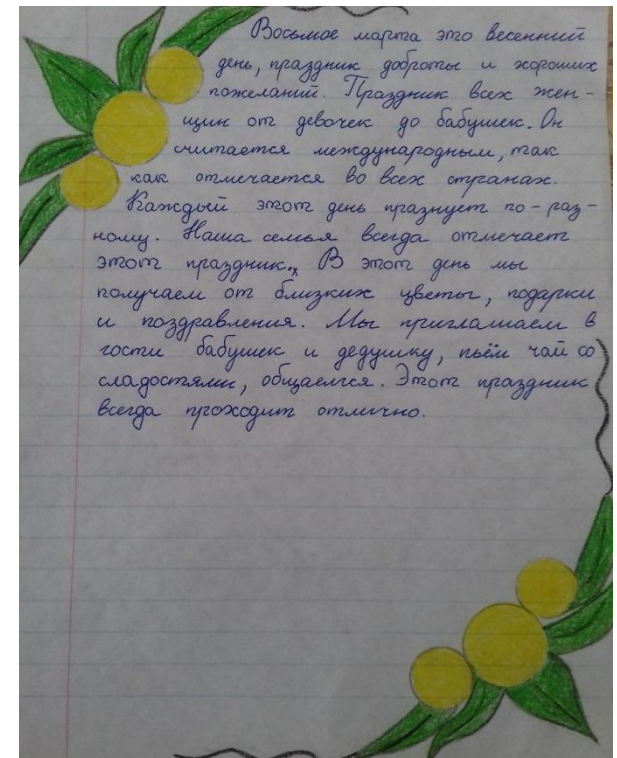 Восьмое марта это весенний
день, праздник доброты и хороших
пожеланий. Праздник всех жен-
щин от девочек до бабушек. Он
считается международным, так
как отмечается во всех странах.
Каждый этот день празнует по-раз-
ному. Наша семья всегда отмечает
этот праздник. В этот день мы
получаем от близких цветы, подарки
и поздравления. Мы приглашаем в
гости бабушек и дедушку, пьём чай со
сладостями, общаемся. Этот праздник
всегда проходит отлично.